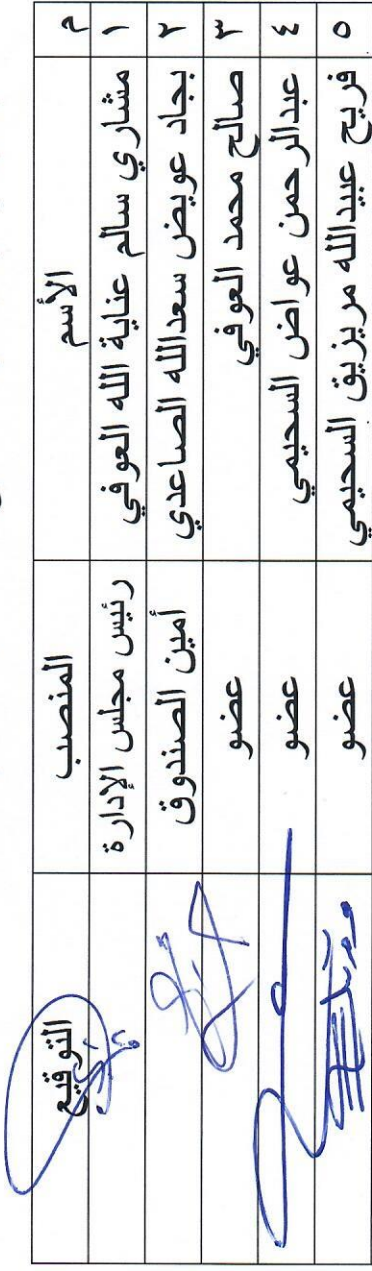 م الأسم المنصب التوقيع
١ مشاري سالم عناية الله العوفي رئيس مجلس الإدارة
٢ بجاد عويض سعدالله الصاعدي أمين الصندوق
٣ صالح محمد العوفي عضو
٤ عبدالرحمن عواض السحيمي عضو
٥ فريح عبيدالله مريزيق السحيمي عضو